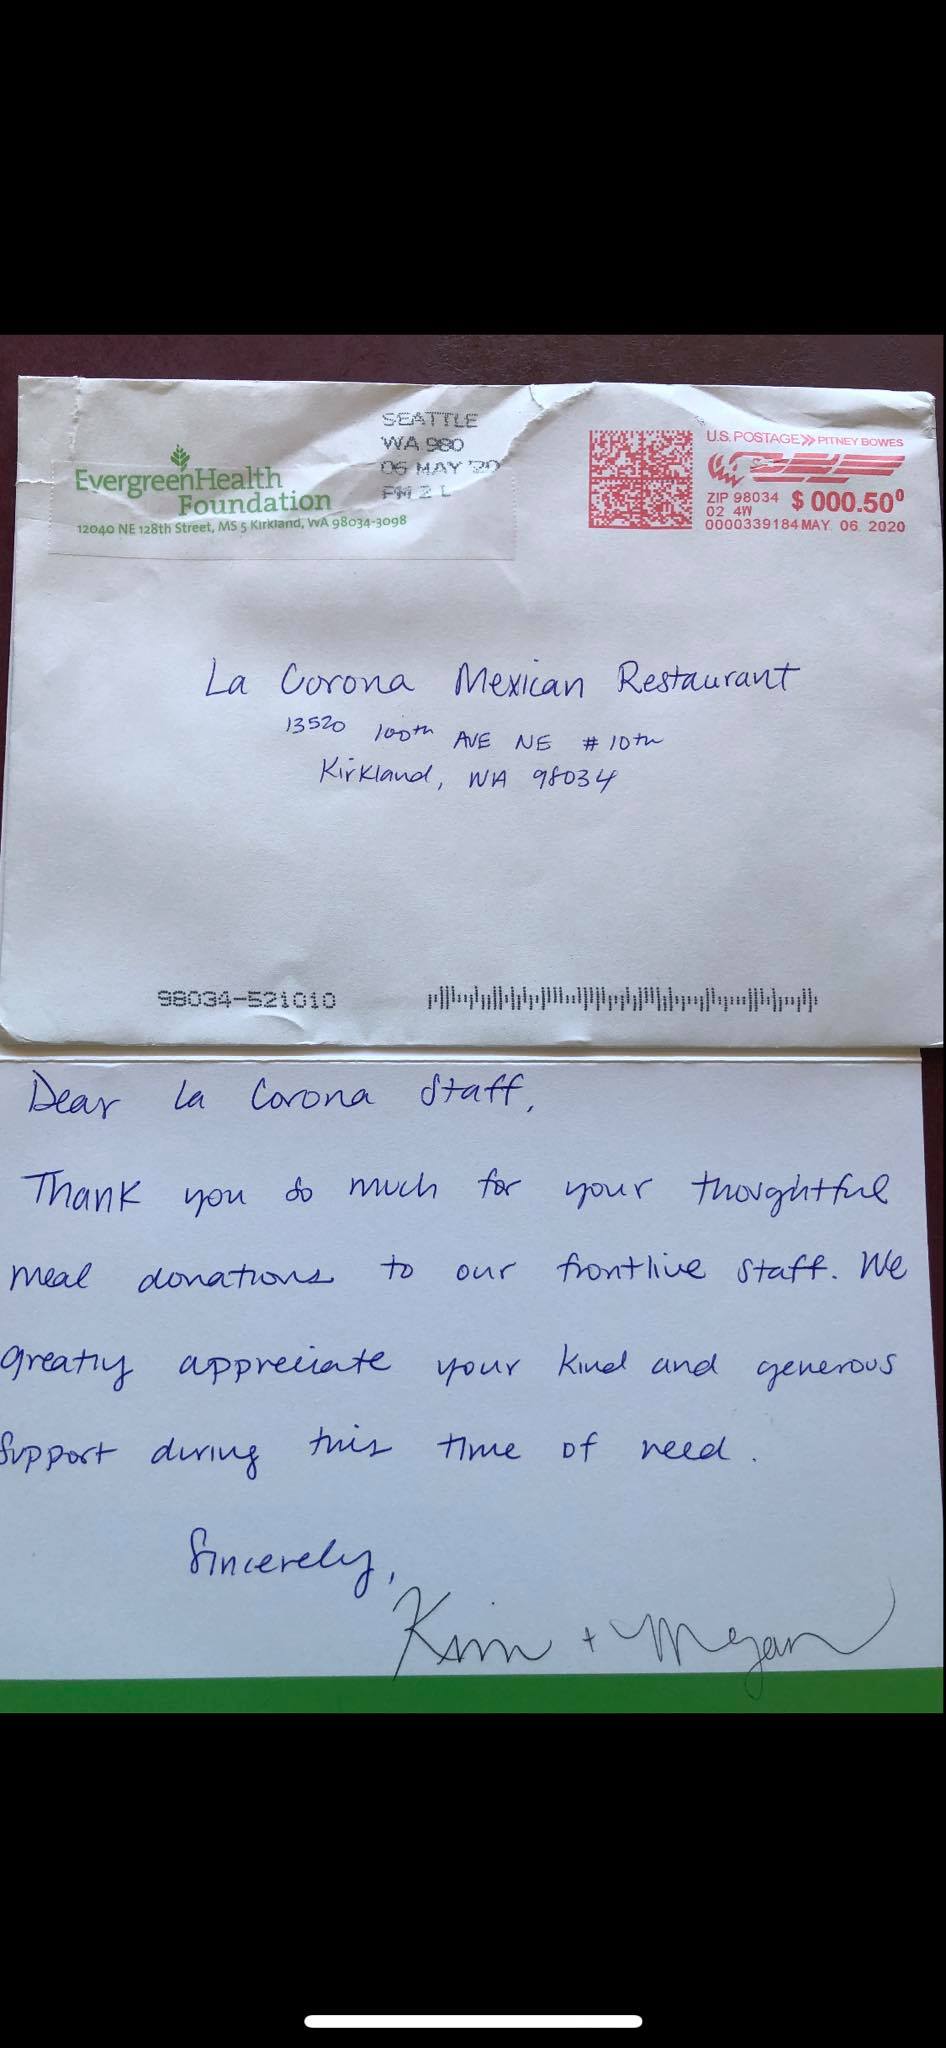 EvergreenHealth
Foundation
12040 NE 128th Street, MS 5 Kirkland, WA 98034-3098
SEATTLE
WA 980
06 MAY '20
PM 2 L
U.S. POSTAGE >> PITNEY BOWES
ZIP 98034 $ 000.50⁰
02 4W
0000339184 MAY 06 2020
La Corona Mexican Restaurant
13520 100th AVE NE #10th
Kirkland, WA 98034
98034-521010
Dear La Corona Staff,
Thank you so much for your thoughtful
meal donations to our frontline staff. We
greatly appreciate your kind and generous
support during this time of need.
Sincerely,
Kim + Megan